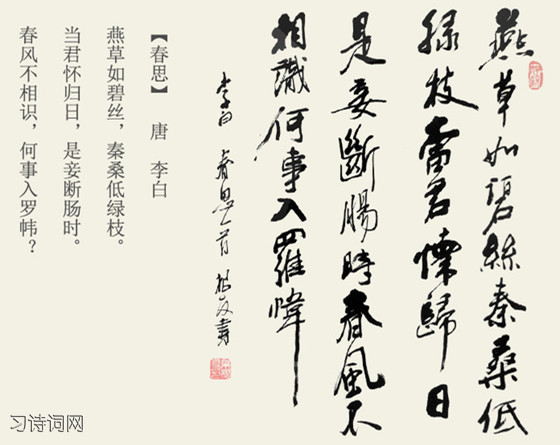 燕草如碧絲秦桑低
綠枝當君懷歸日
是妾斷腸時春風不
相識何事入羅幃
李白 春思一首 書
【春思】 唐 李白
燕草如碧丝，秦桑低绿枝。
当君怀归日，是妾断肠时。
春风不相识，何事入罗帏？
习诗词网